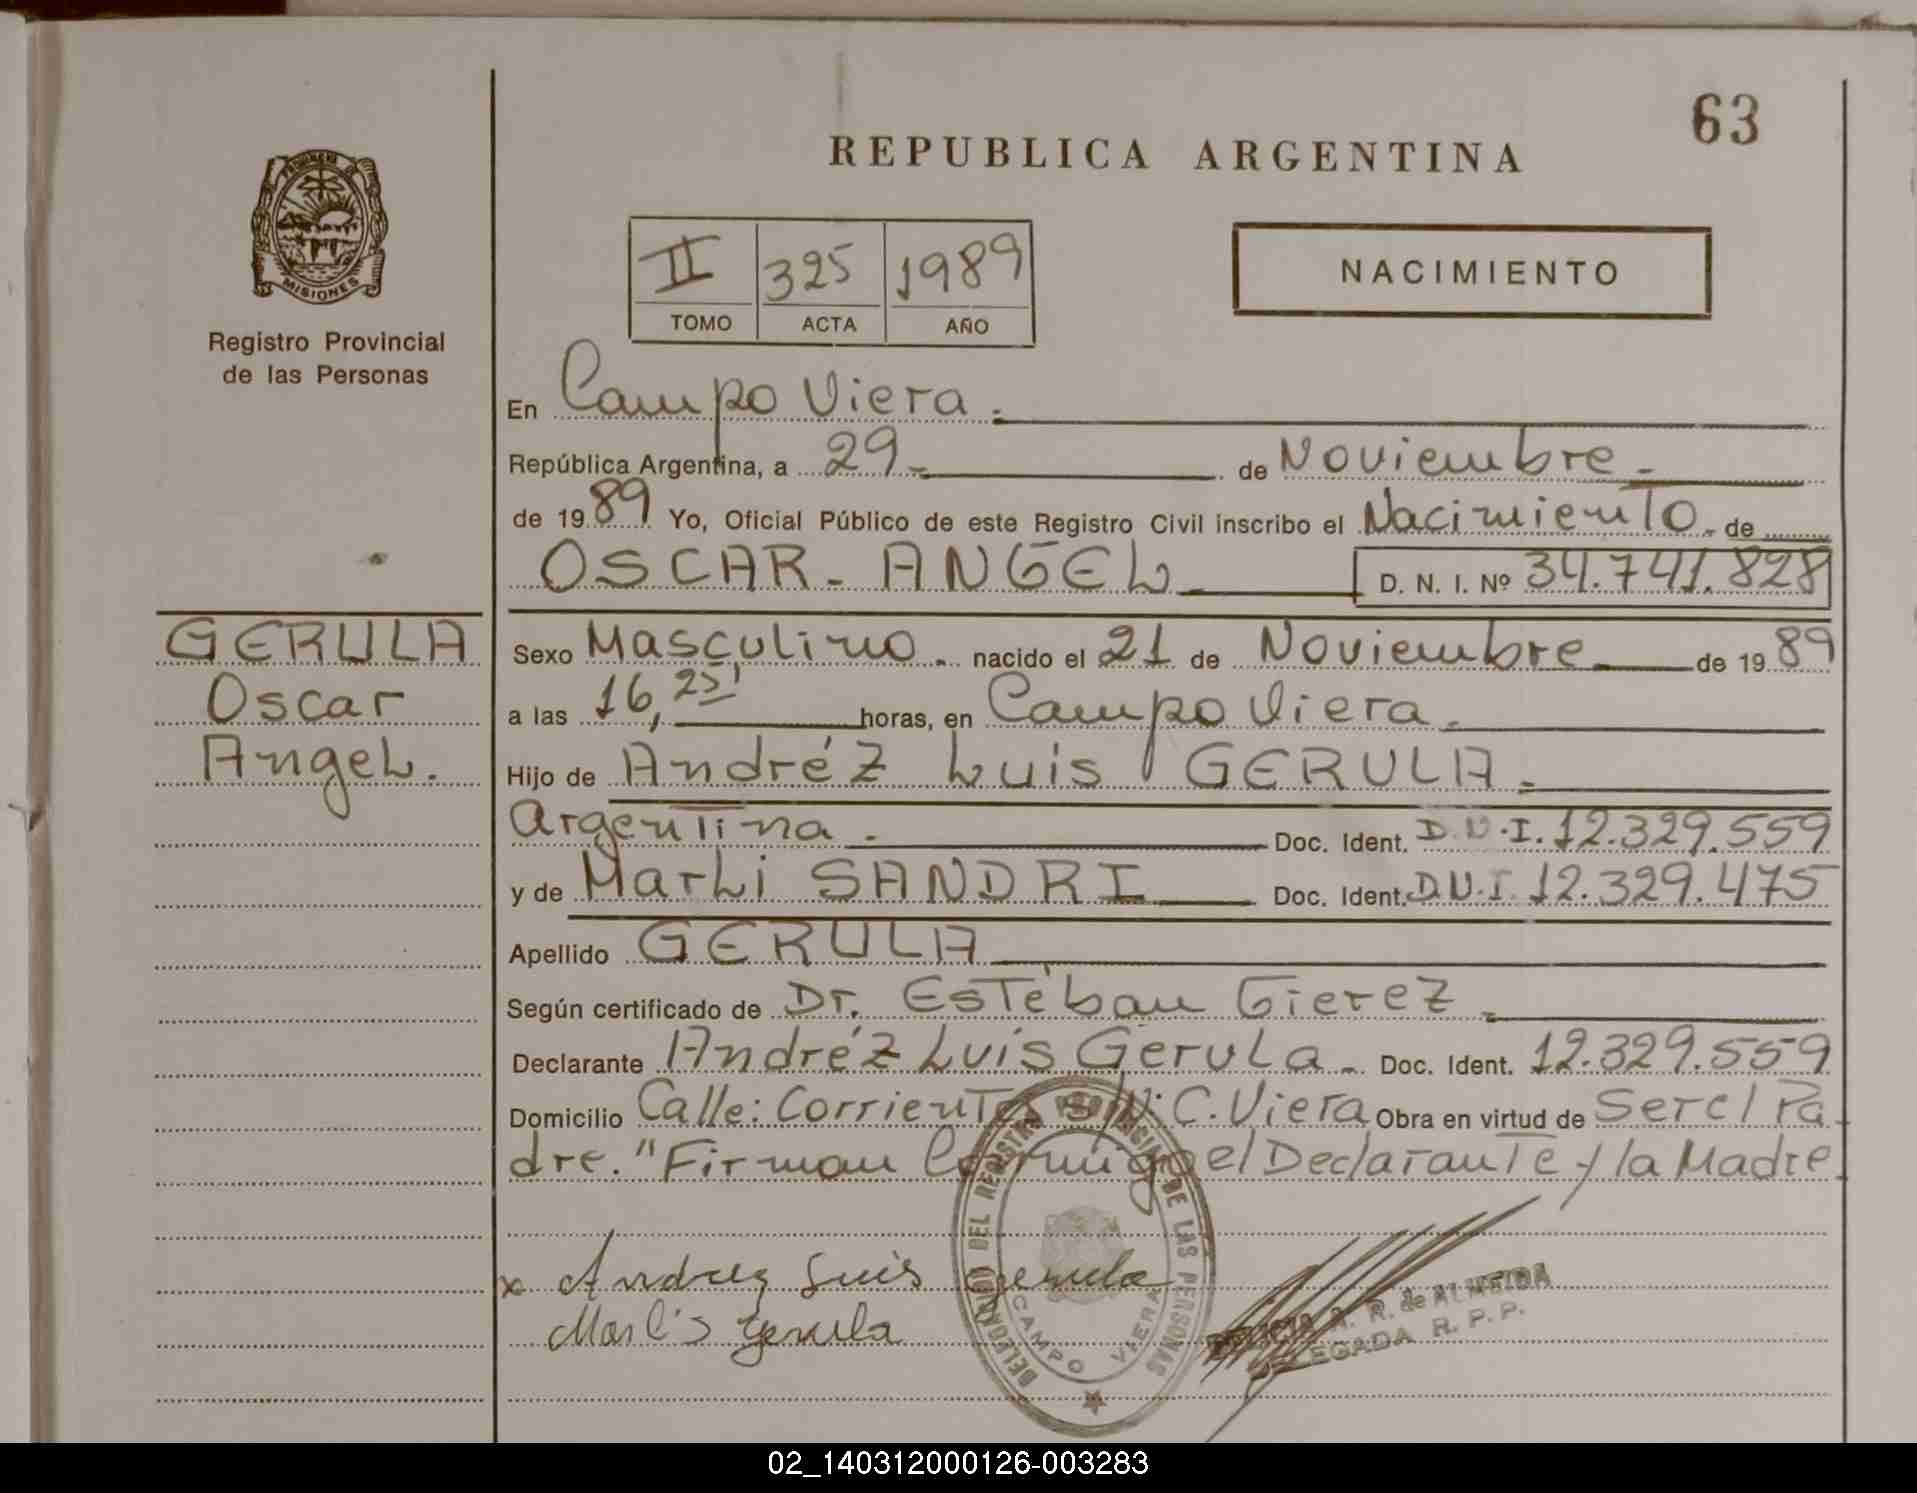 63
REPUBLICA ARGENTINA
MISIONES
Registro Provincial
de las Personas
II 325 1989
TOMO ACTA AÑO
NACIMIENTO
En Campo Viera.
República Argentina, a 29 de Noviembre.
de 1989 Yo, Oficial Público de este Registro Civil inscribo el Nacimiento. de
OSCAR - ANGEL D. N. I. Nº 34.741.828
GERULA
Oscar
Angel.
Sexo Masculino. nacido el 21 de Noviembre de 1989
a las 16,25' horas, en Campo Viera.
Hijo de Andréz Luis GERULA.
Argentina. Doc. Ident. D.N.I. 12.329.559
y de Marli SANDRI Doc. Ident. D.N.I. 12.329.475
Apellido GERULA
Según certificado de Dr. Estéban Gierez
Declarante Andréz Luis Gerula. Doc. Ident. 12.329.559
Domicilio Calle: Corrientes s/N: C. Viera Obra en virtud de Ser el Pa
dre. "Firman Conmigo el Declarante y la Madre.
x Andrez Luis Gerula
Marlis Gerula
DELEGACION DEL REGISTRO PROVINCIAL DE LAS PERSONAS
CAMPO VIERA
R. de ALMEIDA
DELEGADA R. P. P.
02_140312000126-003283